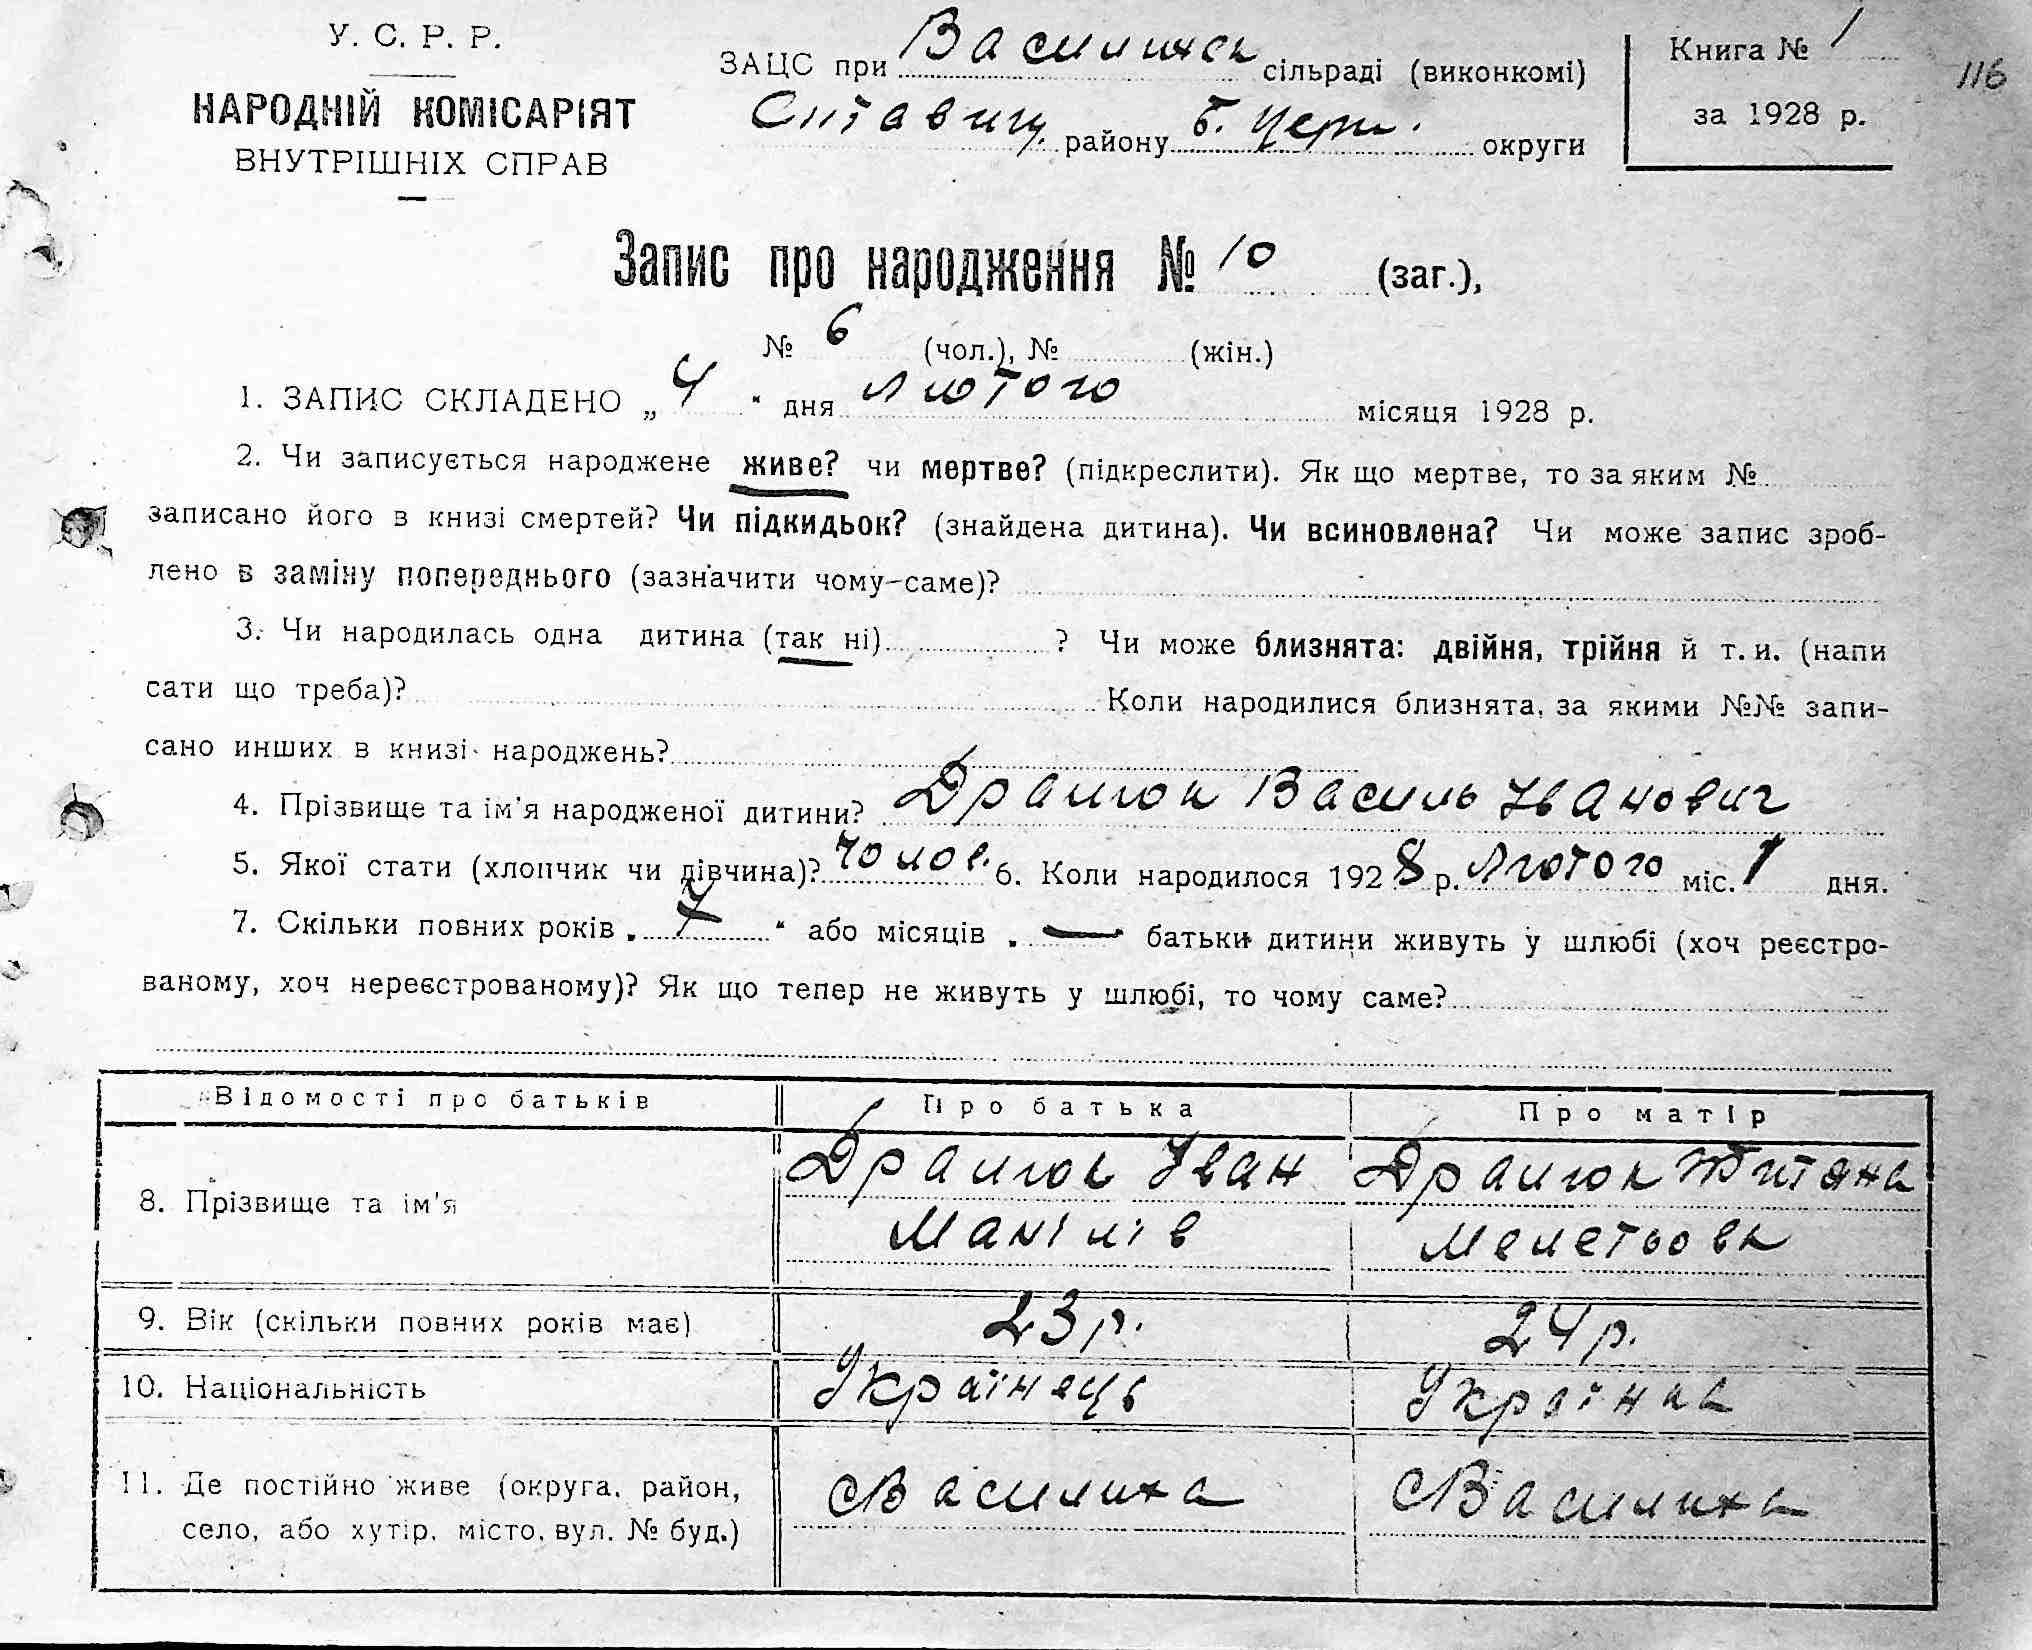 У. С. Р. Р.
НАРОДНІЙ КОМІСАРІЯТ
ВНУТРІШНІХ СПРАВ
ЗАЦС при Василиха сільраді (виконкомі)
Ставищ. району Б. Церк. округи
Книга № 1
за 1928 р.
116
Запис про народження № 10 (заг.),
№ 6 (чол.), № (жін.)
1. ЗАПИС СКЛАДЕНО „ 4 “ дня Лютого місяця 1928 р.
2. Чи записується народжене живе? чи мертве? (підкреслити). Як що мертве, то за яким №
записано його в книзі смертей? Чи підкидьок? (знайдена дитина). Чи всиновлена? Чи може запис зроб-
лено в заміну попереднього (зазначити чому-саме)?
3. Чи народилась одна дитина (так ні) ? Чи може близнята: двійня, трійня й т. и. (напи
сати що треба)? Коли народилися близнята, за якими №№ запи-
сано инших в книзі народжень?
4. Прізвище та ім'я народженої дитини? Драгток Василь Іванович
5. Якої стати (хлопчик чи дівчина)? Чолов. 6. Коли народилося 1928 р. Лютого міс. 1 дня.
7. Скільки повних років „ “ або місяців „ — “ батьки дитини живуть у шлюбі (хоч реєстро-
ваному, хоч нереєстрованому)? Як що тепер не живуть у шлюбі, то чому саме?
Відомості про батьків Про батька Про матір
8. Прізвище та ім'я Іван Титяна
Манілів Мелетьовк
9. Вік (скільки повних років має) 23 р. 24 р.
10. Національність Українець Українка
11. Де постійно живе (округа, район,
село, або хутір, місто, вул. № буд.) с Василиха с Василиха